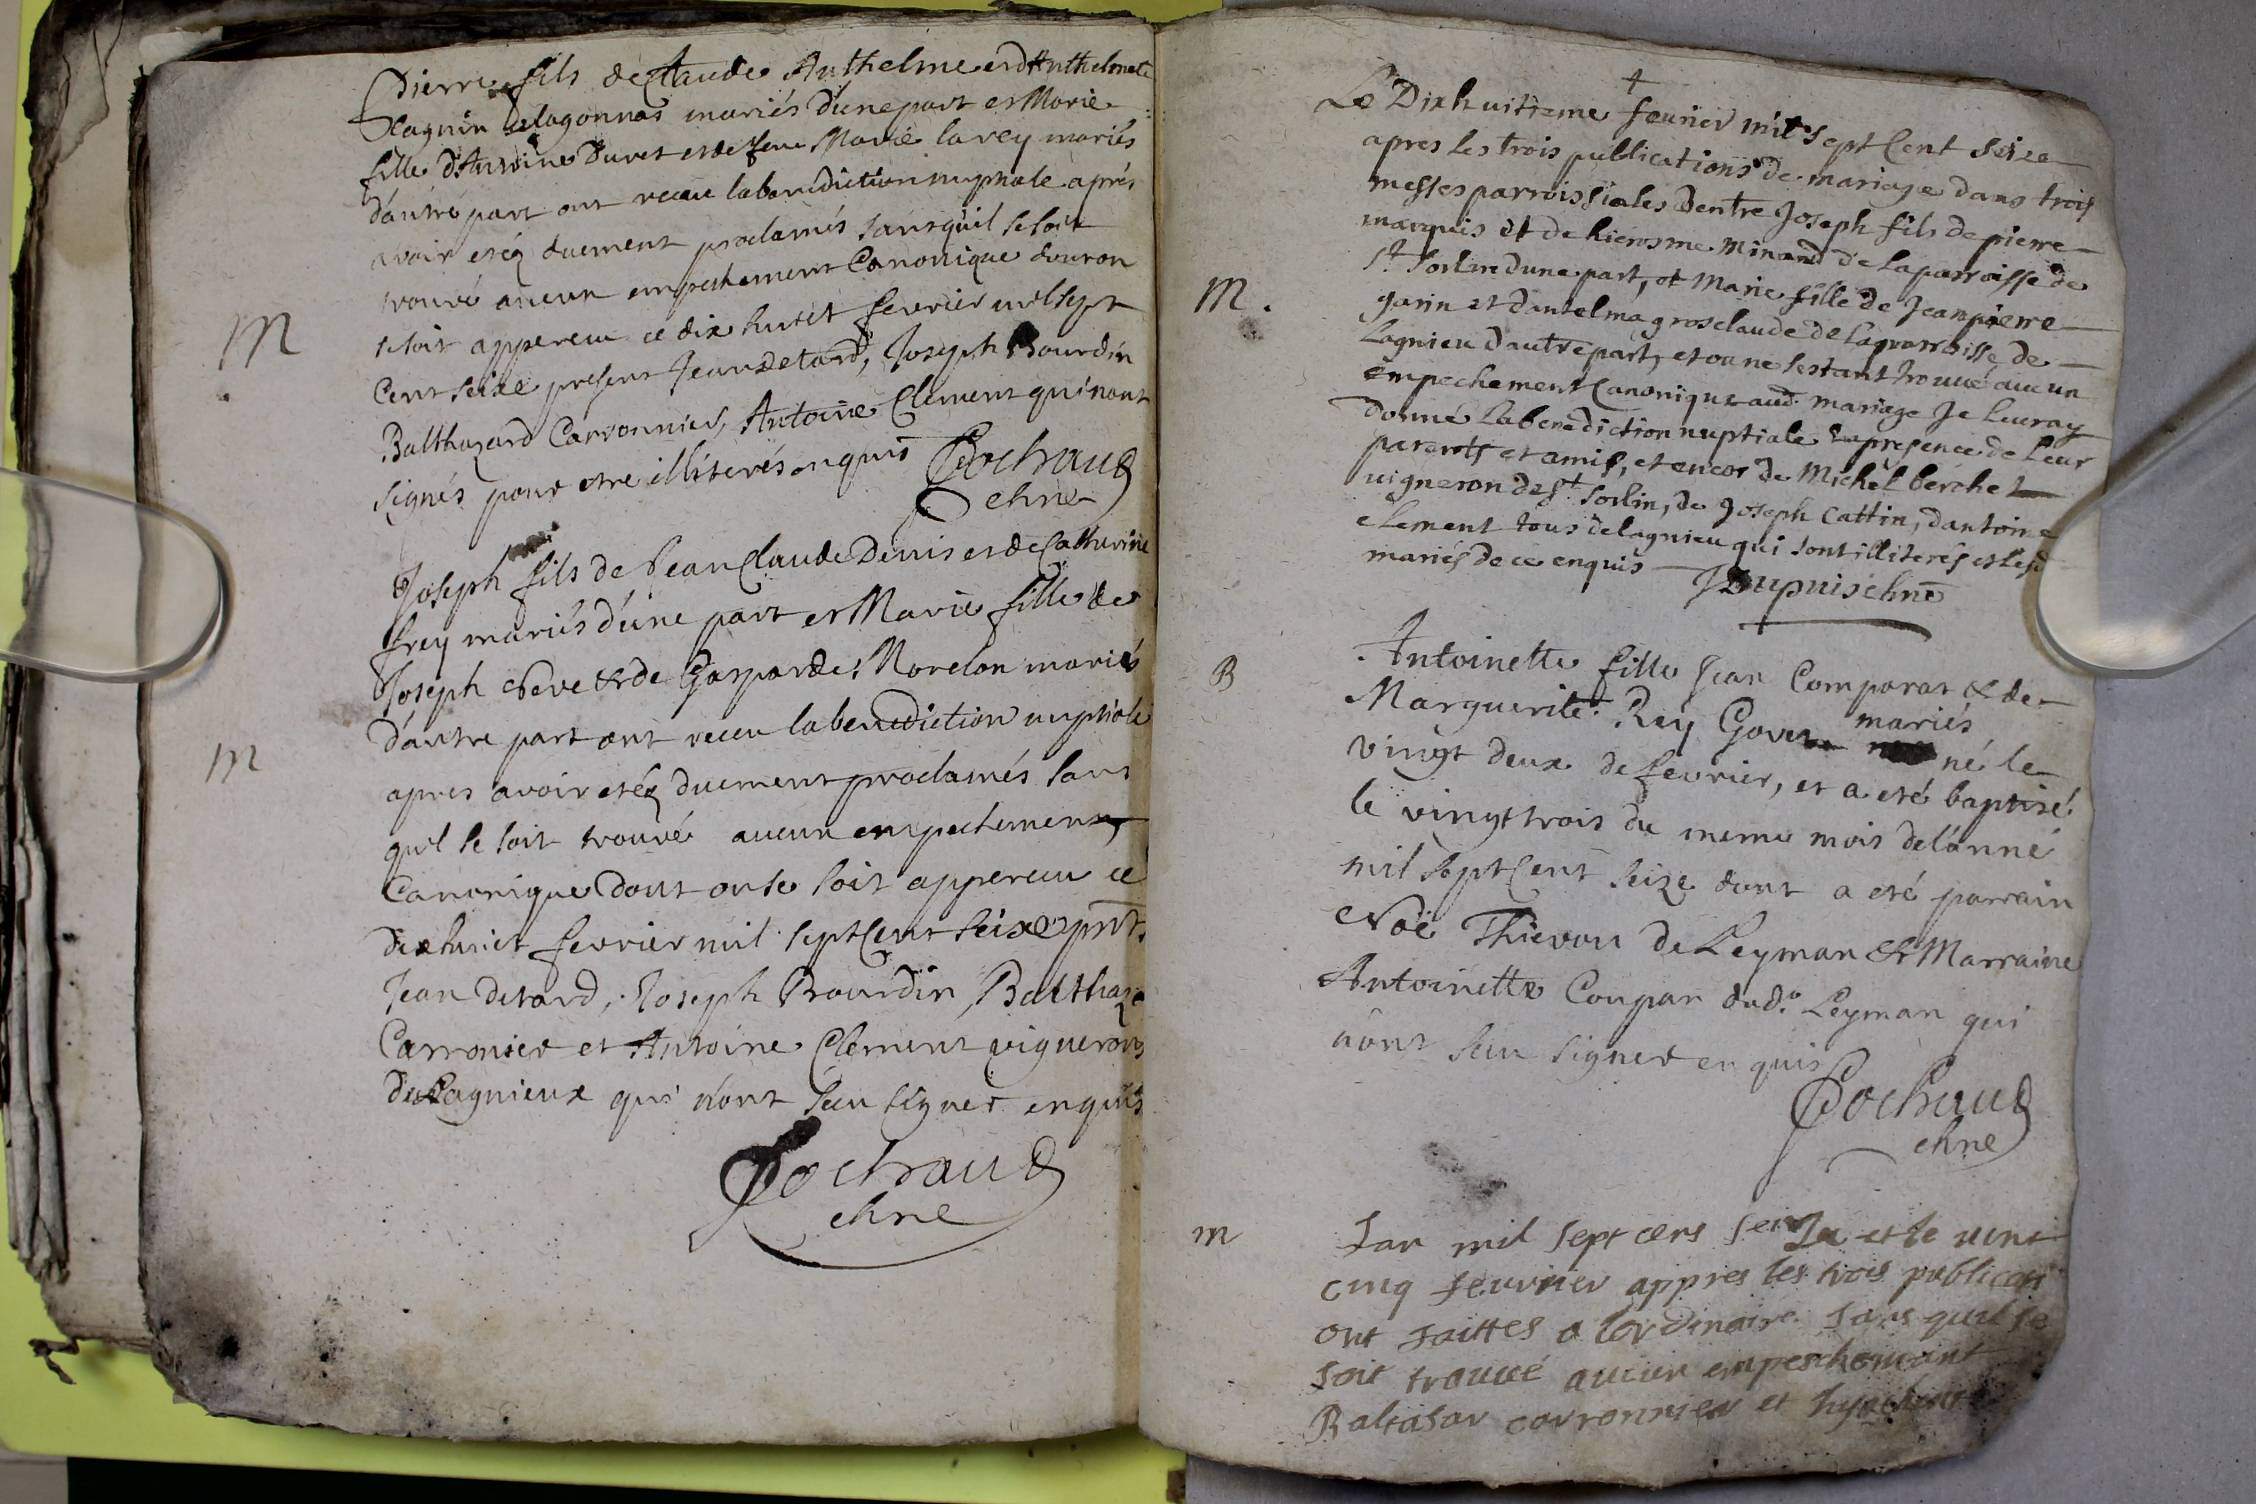 Pierre fils de Claude Anthelme et d'Anthelmete
delagonnas mariés d'une part et Marie
fille d'Antoine Duret et de feue Marie larey mariés
d'autre part ont receu la benediction nuptiale aprés
avoir etéz duement proclamés sans qu'il se soit
trouvé aucun empechement Canonique dont on
se soit appereu ce dix huict fevrier mil sept
Cent seize present Jean detard, Joseph Bourdin
Balthazard Carronnier, Antoine Clement qui n'ont
signés pour etre illiterés enquis Cochaud
chne
M
Joseph fils de Jean Claude Denis et de Catherine
frey mariés d'une part et Marie fille de
Joseph Neve & de Gasparde Morelon mariés
d'autre part ont receu la benediction nuptiale
apres avoir etéz duement proclamés sans
qu'il se soit trouvé aucun empechement
Canonique dont on se soit appereu ce
dix huict fevrier mil sept Cent seize pnt.
Jean detard, Joseph Bourdin, Balthaza
Carronier et Antoine Clement vignerons
de Lagnieux qui n'ont sceu signer enquis
Cochaud
chne
M
Le Dix huitieme feurier mil sept Cent seize
apres les trois publications de mariage dans trois
messes parroissiales Dentre Joseph fils de pierre
marquis et de hierosme minand de la parroisse de
St. Sorlin dune part, et marie fille de Jean pierre
garin et dantelma grosclaude de la parroisse de
Lagnieu dautre part, et on ne sestant trouué aucun
empechement Canonique aud. mariage Je Leur ay
donné La benediction nuptiale En presence de Leur
parents et amis, et encor de Michel berchet
uigneron de St. Sorlin, de Joseph Cattin, dantoine
clement tous de lagnieu qui sont illiterés et lesd
mariés de ce enquis
JDupuis chne
M.
Antoinette fille Jean Comparat & de
Marguerite Rey Govet mariés né le
vingt deux de fevrier, et a eté baptisé
le vingt trois du meme mois de l'année
mil sept Cent seize dont a eté parrain
Noë Thievon de Leyman & Marraine
Antoinette Coupar dud. Leyman qui
n'ont sceu signer enquis
Cochaud
chne
B
Lan mil sept cens seize et le vint
cinq feurier appres les trois publicati
ont faittes a lordinaire sans quil se
soit trouué aucun empeschemant
Baltasar carronnier et hyacinte
m